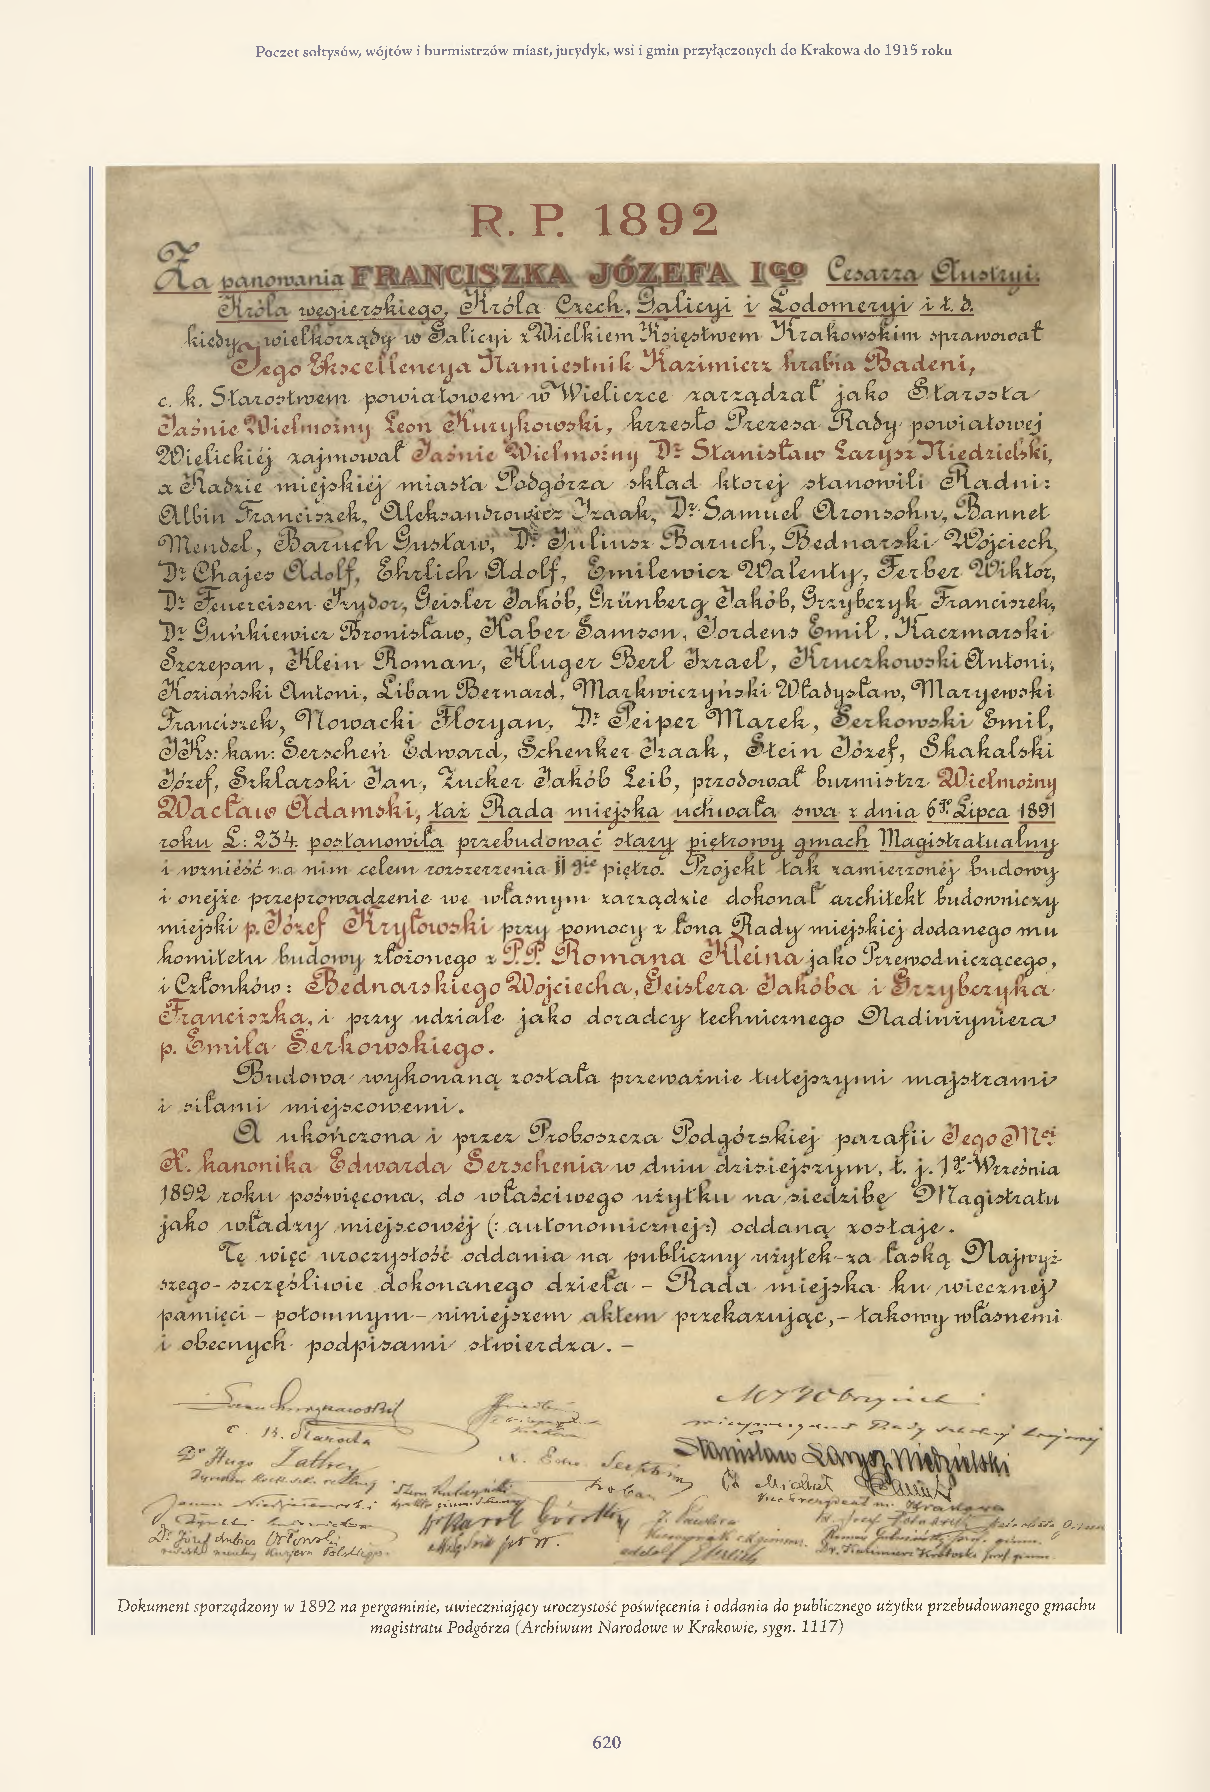 Poczet sołtysów, wójtów i burmistrzów miast, jurydyk, wsi i gmin przyłączonych do Krakowa do 1915 roku
R. P. 1892
Za panowania FRANCISZKA JÓZEFA Igo Cesarza Austryi,
Króla węgierskiego, Króla Czech, Galicyi i Lodomeryi i t. d.
kiedy wielkorządy w Galicyi z Wielkiem Księstwem Krakowskim sprawował
Jego Ekscellencya Namiestnik Kazimierz hrabia Badeni,
c. k. Starostwem powiatowem w Wieliczce zarządzał jako Starosta
Jaśnie Wielmożny Leon Kurykowski, krzesło Prezesa Rady powiatowej
Wielickiéj zajmował Jaśnie Wielmożny Dr. Stanisław Larysz Niedzielski,
a Radzie miejskiéj miasta Podgórza skład ktorej stanowili Radni:
Albin Franciszek, Aleksandrowicz Izaak, Dr. Samuel Aronsohn, Bannet
Mendel, Baruch Gustaw, Dr. Juliusz Baruch, Bednarski Wojciech,
Dr. Chajes Adolf, Ehrlich Adolf, Emilewicz Walenty, Ferber Wiktor,
Dr. Feuereisen Izydor, Geisler Jakób, Grünberg Jakób, Grzybczyk Franciszek,
Dr. Guńkiewicz Bronisław, Haber Samson, Jordens Emil, Kaczmarski
Szczepan, Klein Roman, Kluger Berl Izrael, Kruczkowski Antoni,
Koziański Antoni, Liban Bernard, Markwiczyński Władysław, Maryewski
Franciszek, Nowacki Floryan, Dr. Peiper Marek, Serkowski Emil,
JKs: kan: Serscheń Edward, Schenker Izaak, Stein Józef, Skakalski
Józef, Szklarski Jan, Zucker Jakób Leib, przodował burmistrz Wielmożny
Wacław Adamski, taż Rada miejska uchwałą swą z dnia 6go Lipca 1891
roku L: 234 postanowiła przebudować stary piętrowy gmach Magistratualny
i wznieść na nim celem rozszerzenia II gie piętro. Projekt tak zamierzonéj budowy
i onejże przeprowadzenie we własnym zarządzie dokonał architekt budowniczy
miejski p. Józef Kryłowski przy pomocy z łona Rady miejskiéj dodanego mu
komitetu budowy złożonego z P.P. Romana Kleina jako Przewodniczącego,
i Członków: Bednarskiego Wojciecha, Geislera Jakóba i Grzybczyka
Franciszka, i przy udziale jako doradcy technicznego Nadinżyniera
p. Emila Serkowskiego.
Budowa wykonaną została przeważnie tutejszymi majstrami
i siłami miejscowemi.
A ukończona i przez Proboszcza Podgórskiéj parafii Jego Mci
X. kanonika Edwarda Serschenia w dniu dzisiejszym, t. j. 1go Września
1892 roku poświęcona, do właściwego użytku na siedzibę Magistratu
jako władzy miejscowéj (: autonomicznej:) oddaną zostaje.
Tę więc uroczystość oddania na publiczny użytek-za łaską Najwyż-
szego- szczęśliwie dokonanego dzieła - Rada miejska ku wiecznej
pamięci - potomnym - niniejszem aktem przekazując, - takowy własnemi
i obecnych podpisami stwierdza. -
c. k. Starosta
Stanisław Larysz Niedzielski
Dr Hugo
Dr Karol
Adolf
Dokument sporządzony w 1892 na pergaminie, uwieczniający uroczystość poświęcenia i oddania do publicznego użytku przebudowanego gmachu
magistratu Podgórza (Archiwum Narodowe w Krakowie, sygn. 1117)
620